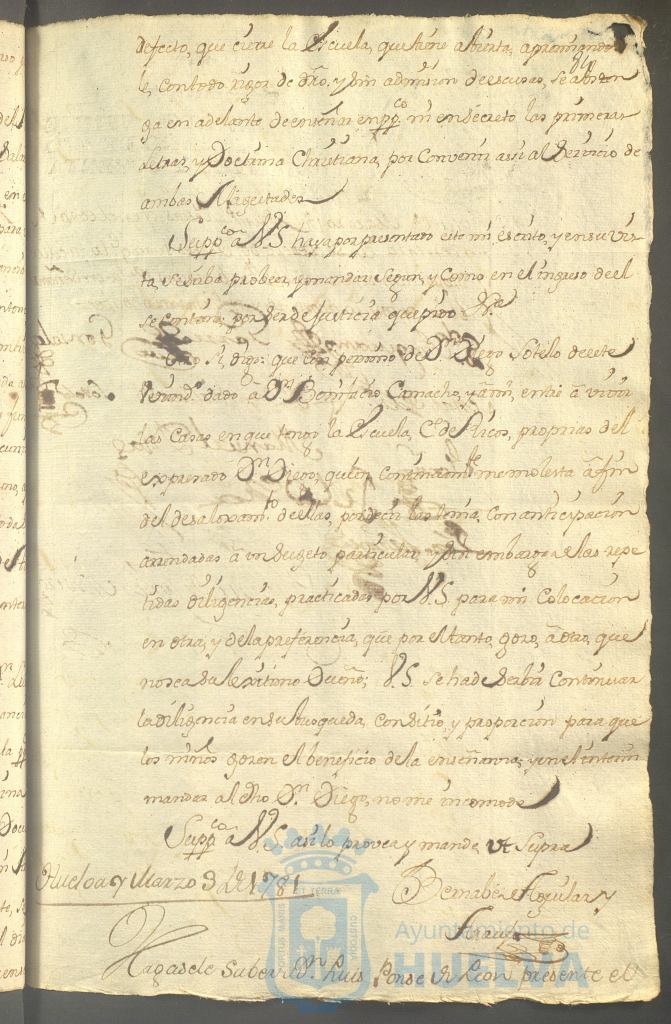 defecto, que cierre la Escuela, que tiene abierta, apremiando
le, con todo rigor de dro. y sin admision de escusas, se abten
ga en adelante de enseñar en pp.co ni en secreto las primeras
Letras, y Doctrina Christiana, por convenir assi al servicio de
ambas Magestades
Supp.co a V.S. haya por presentado este mi escrito, y en su vis
ta, se sirba probeer, y mandar segun, y como en el ingreso de el
se contiene, por ser de Justicia que pido &c
Otro si, digo: que con permiso de D.n Diego Sotelo de este
Vecind.o dado à D.n Bonifacio Camacho, y à mi, entré à vivir
las Casas en que tengo la Escuela, C.e de Ricos, proprias del
expresado D.n Diego, quien continuam.te me molesta à fin
del desaloxam.to de ellas, por decir las tenia, con anticipación
arrendadas à un Sugeto particular, sin embargo a las repe
tidas diligencias, practicadas por V.S. para mi Colocacion
en otra, y de la preferencia, que por el tanto, gozo, à otro, que
no sea su lexitimo Dueño; V.S. se ha de serbir Continuar
la diligencia en su busqueda, con sitio, y proporcion para que
los niños gozen el beneficio de la enseñanza; y en el interin
mandar al dho D.n Diego, no me incomode
Supp.co a V.S. asi lo provea y mande, ut supra
Huelva y Marzo 3 de 1781
Bernabè de Aguilar y
Hagasele saber a D.n Luis Ponse de Leon presente el
PORTUS MARIS ET TERRÆ CUSTODIA
Ayuntamiento de
HUELVA